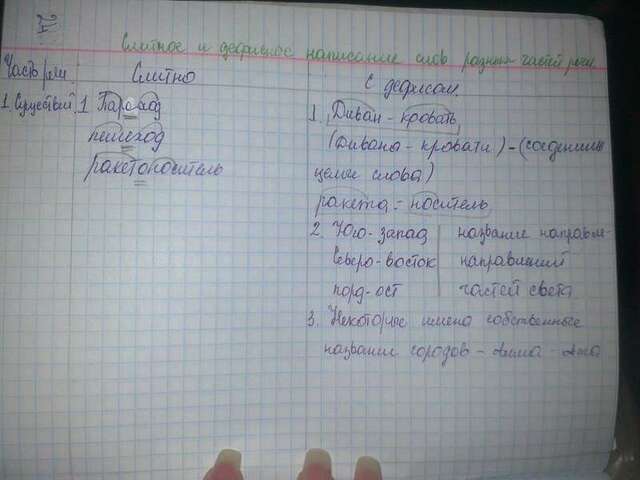 Слитное и дефисное написание слов разных частей речи
Часть речи Слитно С дефисом
1. Существит. 1. Паросад
пешеход
ракетоноситель
1. Диван - кровать
(Дивана - кровати) - (соединили
целые слова)
ракета - носитель
2. Юго-запад название направл-
Северо-восток направлений
норд-ост частей света
3. Некоторые имена собственные
названия городов - Алма - Ата